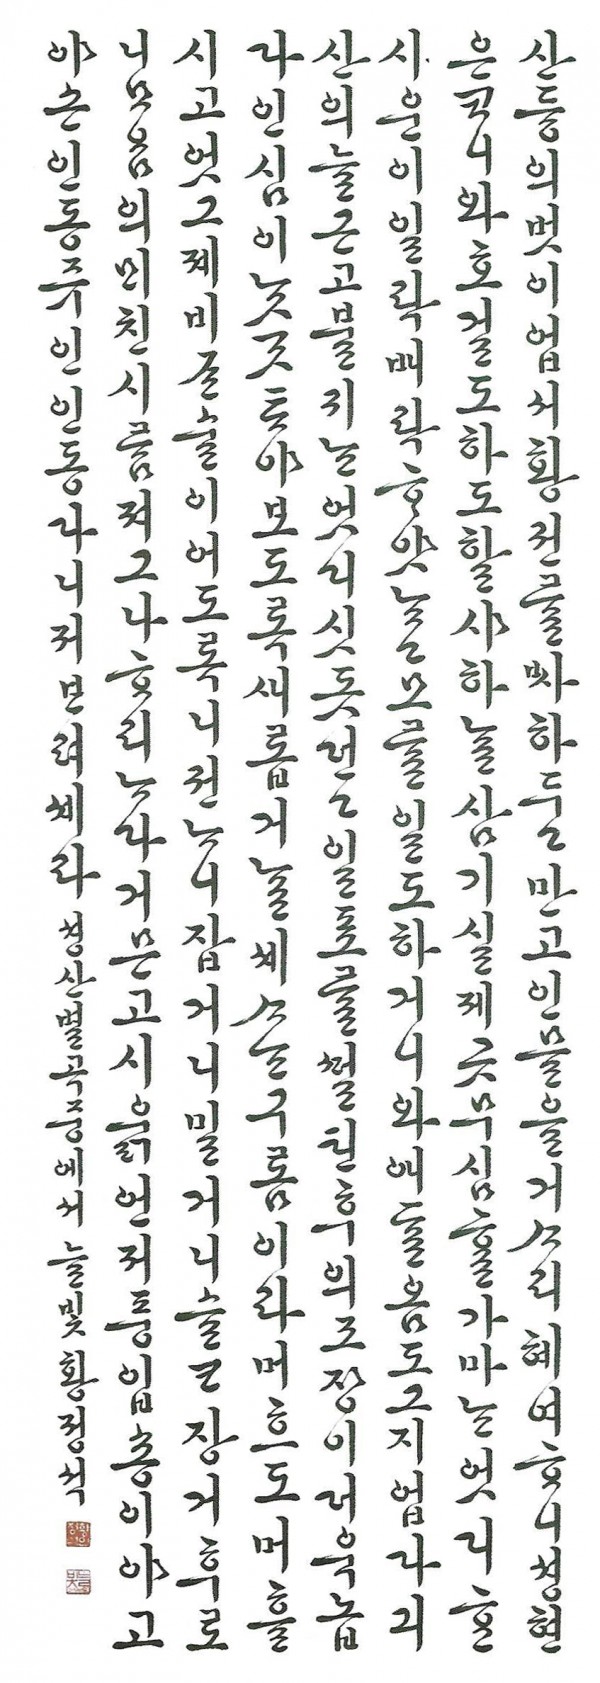 산듕의벗이업서황권를ᄡᅡ하두고만고인믈을거ᄉᆞ리혜여ᄒᆞ니셩현
은ᄏᆞ니와호걸도하도할샤하ᄂᆞᆯ삼기실제곳무심ᄒᆞᆯ가마ᄂᆞᆫ엇디ᄒᆞᆫ
시운이일락배락ᄒᆞ얏ᄂᆞᆫ고모ᄅᆞᆯ일도하거니와애ᄃᆞᆯ옴도그지업다긔
산의늘근고블귀ᄂᆞᆫ엇디싯돗던고일표ᄅᆞᆯᄯᅥᆯ틴후의조쟝이더욱놉
다인심이ᄂᆞᆺᄀᆞᆺᄐᆞ야보도록새롭거ᄂᆞᆯ셰ᄉᆞᄂᆞᆫ구롬이라머흐도머흘
시고엇그제비ᄌᆞᆫ술이어도록니건ᄂᆞ니잡거니밀거니슬ᄏᆞ장거후로
니ᄆᆞᄋᆞᆷ의ᄆᆡ친시ᄅᆞᆷ져그나ᄒᆞ리ᄂᆞ다거믄고시욹언저풍입숑이야고
야손인동쥬인인동다니저ᄇᆞ려셰라 셩산별곡중에서 늘빛 황정석